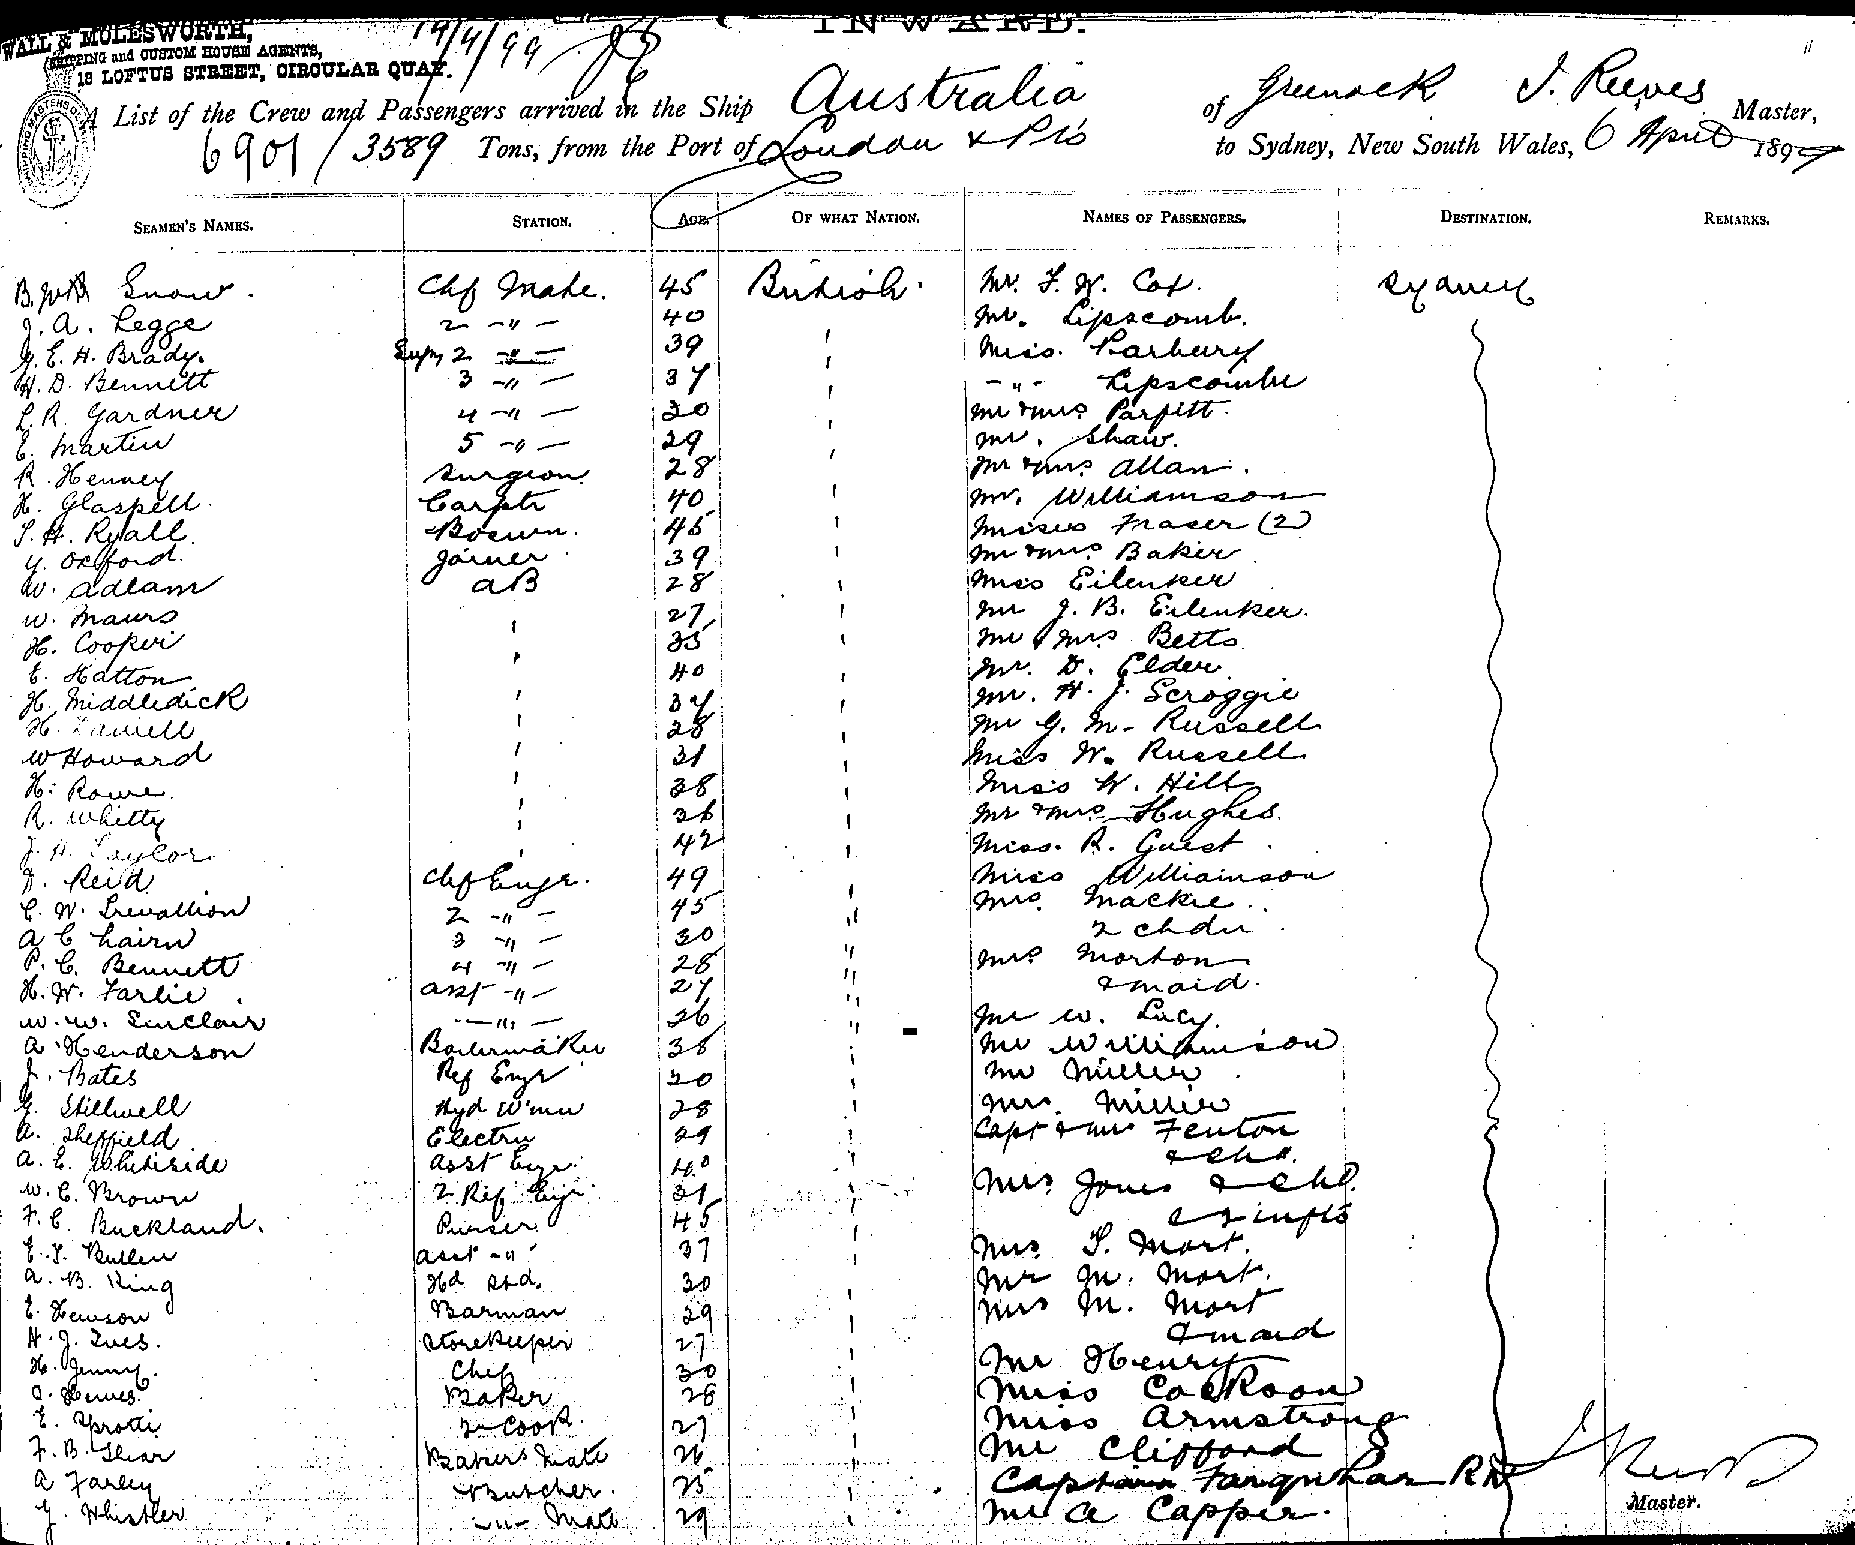 INWARD.
WALL & MOLESWORTH,
SHIPPING and CUSTOM HOUSE AGENTS,
18 LOFTUS STREET, CIRCULAR QUAY.
A List of the Crew and Passengers arrived in the Ship Australia of Greenock J. Reeves Master,
6901/3589 Tons, from the Port of London & Pts to Sydney, New South Wales, 6 April 1899
SEAMEN'S NAMES. STATION. AGE. OF WHAT NATION. NAMES OF PASSENGERS. DESTINATION. REMARKS.
Snow. Chf Mate. 45 British. Mr. F. W. Cox. Sydney
J. A. Legge 2 -"- 40 Mr. Lipscomb.
G. E. H. Brady. Supy 2 -"- 39 Miss. Parbury
H. D. Bennett 3 -"- 37 -"- Lipscombe
L. R. Gardner 4 -"- 30 Mr & Mrs Parfitt.
E. Martin 5 -"- 29 Mr. Shaw.
R. Henney Surgeon 28 Mr & Mrs Allan.
H. Glaspell. Carptr 40 Mr. Williamson
S. H. Ryall. Boswn. 45 Misses Fraser (2)
Y. Oxford. Joiner 39 Mr & Mrs Baker
W. Adlam AB 28 Miss Eilenker
W. Maurs " 27 Mr J. B. Eilenker.
H. Cooper " 35 Mr & Mrs Betts
E. Hatton " 40 Mr. D. Elder
H. Middledick " 34 Mr. H. J. Scroggie
H. " 28 Mr G. M. Russell
W Howard " 31 Miss W. Russell
H. Rowe " 38 Miss W. Hill
R. Whitty " 36 Mr & Mrs Hughes.
J. H. Taylor " 42 Miss. R. Guest
D. Reid Chf Engr. 49 Miss Williamson
C. W. Trevallion 2 -"- 45 Mrs. Mackie
A C Cairn 3 -"- 30 2 chdn
P. C. Bennett 4 -"- 28 Mrs Morton
H. W. Farlie Asst -"- 27 & maid.
W. W. Sinclair -"- 26 Mr W. Lucy.
A Henderson Boilermaker 38 Mr Williamson
J. Bates Ref Engr 30 Mr Miller
G. Stillwell Hyd W'man 28 Mrs. Miller
A. Sheffield Electrn 29 Capt & Mrs Fenton
A. E. Whiteside Asst Engr. 40 & Chd.
W. C. Brown 2 Ref Engr 31 Mrs Jones & Chd.
F. C. Buckland. Purser 45 & 2 infts
E. J. Bullen Asst -"- 37 Mrs S. Mort.
A. B. King Hd Std. 30 Mr M. Mort.
E. Hewson Barman 29 Mrs M. Mort
H. J. Ives. Storekeeper 27 & maid
H. Jenny. Chef 30 Mr Henry
Baker 28 Miss Cockson
E. 2 Cook. 27 Miss Armstrong
F. B. Bakers Mate 26 Mr Clifford
A Farley Butcher. 25 Captain Farquhar RN
G. Whistler -"- Mate 29 Mr A Capper.
J Reeves
Master.